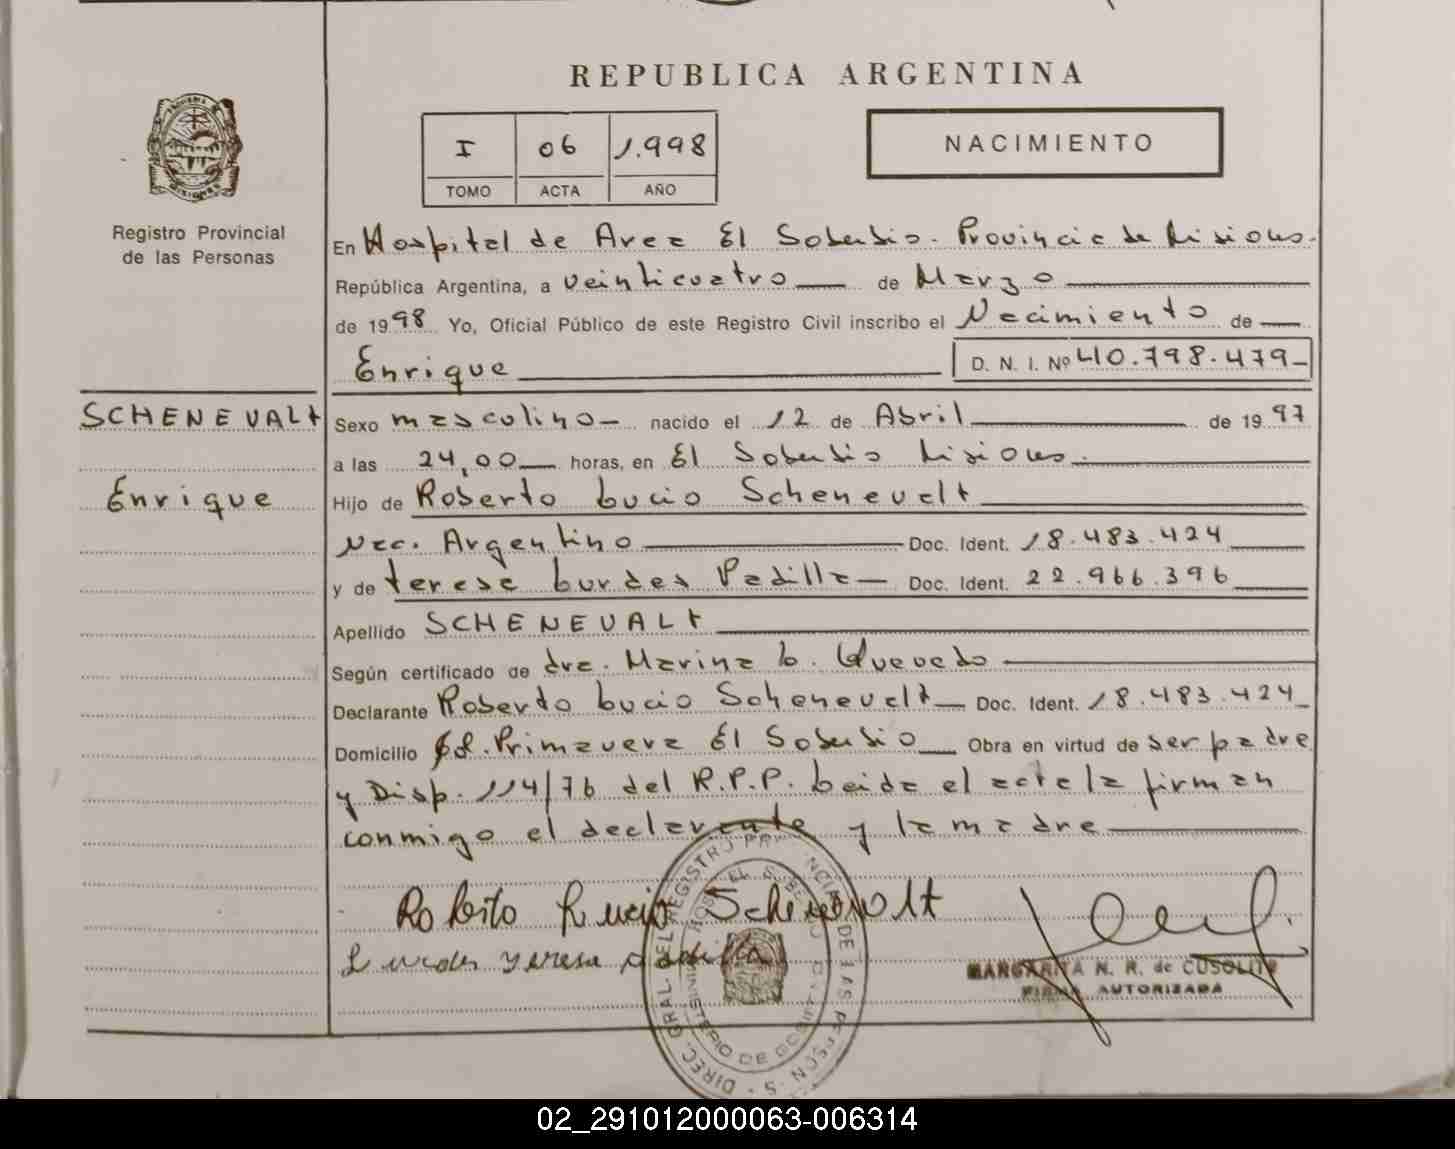 REPUBLICA ARGENTINA
I 06 1.998
TOMO ACTA AÑO
NACIMIENTO
Registro Provincial
de las Personas
En Hospital de Area El Soberbio. Provincia de Misiones.
República Argentina, a veinticuatro de Marzo
de 1998 Yo, Oficial Público de este Registro Civil inscribo el Nacimiento de
Enrique D. N. I. Nº 40.798.479
SCHENEVALt
Enrique
Sexo masculino nacido el 12 de Abril de 1997
a las 24,00 horas, en El Soberbio Misiones.
Hijo de Roberto Lucio Schenevalt
Nac. Argentino Doc. Ident. 18.483.424
y de teresa Lurdes Padilla Doc. Ident. 22.966.396
Apellido SCHENEVALt
Según certificado de dra. Marina L. Quevedo
Declarante Roberto Lucio Schenevalt Doc. Ident. 18.483.424
Domicilio Primavera El Soberbio Obra en virtud de ser padre
y Disp. 114/76 del R.P.P. Leida el acta la firman
conmigo el declarante y la madre
Roberto Lucio
Lurdes Teresa Padilla
DIREC. GRAL. DEL REGISTRO PROVINCIAL DE LAS PERSONAS
MINISTERIO DE GOBIERNO
MARGARITA N. R. de CUSOLITO
FIRMA AUTORIZADA
02_291012000063-006314